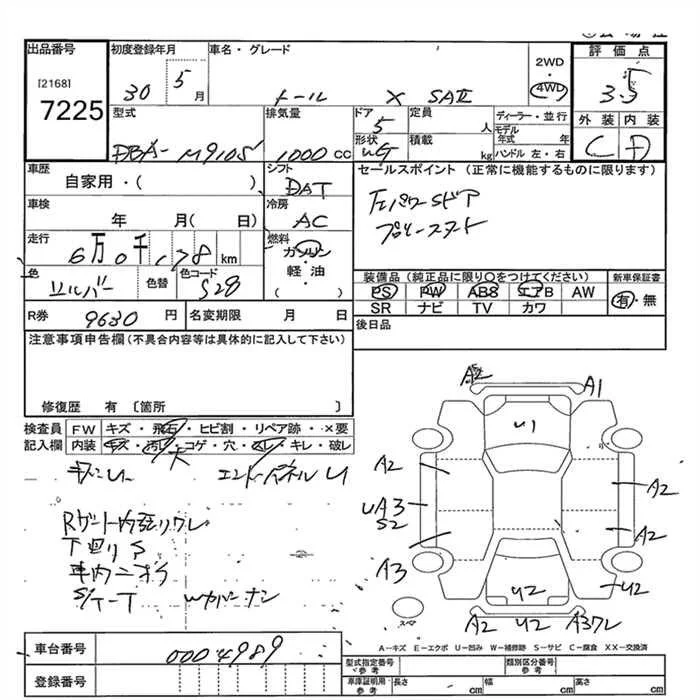 出品番号 初度登録年月 車名・グレード 評価点
[2168]
7225
30 5月 トール X SAII 2WD・4WD 3.5
型式 排気量 ドア 定員 ディーラー・並行 外装 内装
DBA-M910S 1000cc 5 人 モデル年式 年 C D
形状 積載 kg ハンドル 左・右
車歴 シフト セールスポイント (正常に機能するものに限ります)
自家用・( ) DAT
左パワーSドア
車検 冷房
年 月( 日) AC
走行 燃料
6万0千,178km ガソリン・軽油( )
色 色替 色コード 装備品 (純正品に限り○をつけてください) 新車保証書
シルバー S28 PS PW ABS エアB AW 有・無
SR ナビ TV カワ
R券 9630円 名変期限 月 日 後日品
注意事項申告欄(不具合内容等は具体的に記入して下さい)
修復歴 有 〔箇所 〕
検査員 FW キズ・飛石・ヒビ割・リペア跡・×要
記入欄 内装 キズ・汚れ・コゲ・穴・スレ・キレ・破レ
大
キズU エンドパネルU
Rゲート内張りワレ
下回りS
車内ニオイ
S/T-T
A2 A1
U1
A2 A2
UA3
S2 A2
A3 U2
U2
スペア
A2 U2
A-キズ E-エクボ U-凹み W-補修跡 S-サビ C-腐食 XX-交換済
車台番号 0004989
型式指定番号 参考 類別区分番号 参考
登録番号
車庫証明用 参考 長さ cm 幅 cm 高さ cm